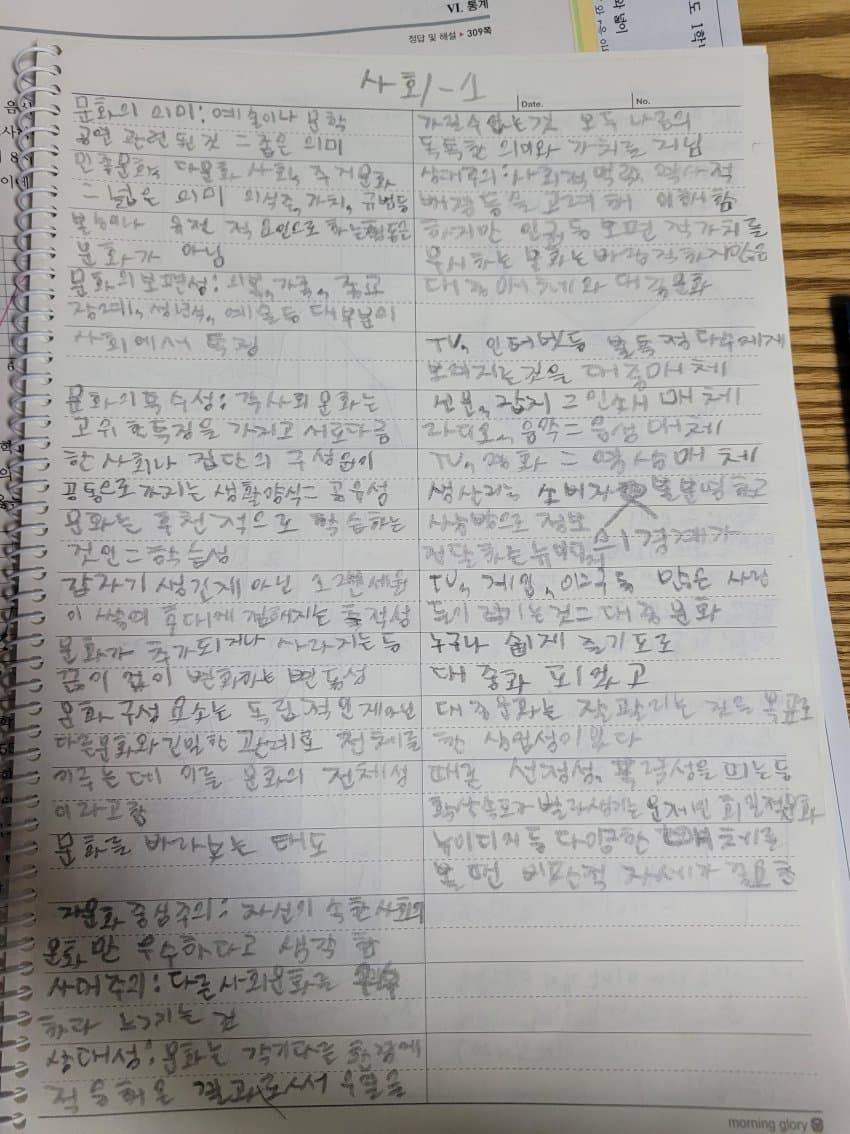 VI. 통계
정답 및 해설 ▸ 309쪽
사회-1
Date.
No.
문화의 의미: 예술이나 문학
공연 관련된것 = 좁은 의미
민족문화, 다문화 사회, 주거문화
= 넓은 의미 의식주, 가치, 규범등
본능이나 유전적 요인으로 하는행동은
문화가 아님
문화의보편성: 의복, 가족, 종교
장례, 성년식, 예술등 대부분이
사회에서 특징
문화의특수성: 각사회문화는
고위한특징을 가지고 서로다름
한 사회나 집단의 구성원이
공통으로가지는 생활양식= 공유성
문화는 후천적으로 학습하는
것인=학습성
갑자기 생긴게 아닌 오랜세월
이 쌓여 후대에 전해지는 축적성
문화가 추가되거나 사라지는등
끊이 없이 변화하는 변동성
문화 구성 요소는 독립적인게아닌
다른문화와긴밀한 관계로 전체를
이루는데 이를 문화의 전체성
이라고함
문화를 바라보는 태도
자문화 중심주의: 자신이 속한사회의
문화만 우수하다고 생각 함
사대주의: 다른사회문화를 우수
하다 느끼는 것
상대성: 문화는 각기다른 환경에
적응해온 결과로서 우열을
가릴수없는것 모두 나름의
독특한 의미와 가치를 지님
상대주의: 사회적맥락, 역사적
배경등을 고려해 이해함
하지만 인권등 보편적가치를
무시하는 문화는바람직하지않음
대중매체와 대중문화
TV, 인터넷등 불특정다수에게
보여지는것을 대중매체
신문, 잡지 = 인쇄 매체
라디오, 음악= 음성매체
TV, 영화 = 영상매체
생산자는 소비자 불분명하고
사방향으로 정보
전달하는 뉴미디어 경계가
TV, 게임, 이스포츠등 많은 사람
들이 즐기는것= 대중문화
누구나 쉽게 즐기도로
대중화 되었고
대중문화는 잘팔리는 것을 목표로
한 상업성이있다
때론 선정성, 폭력성을 띄는등
획일적문화
뉴미디어등 다양한 매체를
볼때 비판적 자세가 필요한
morning glory